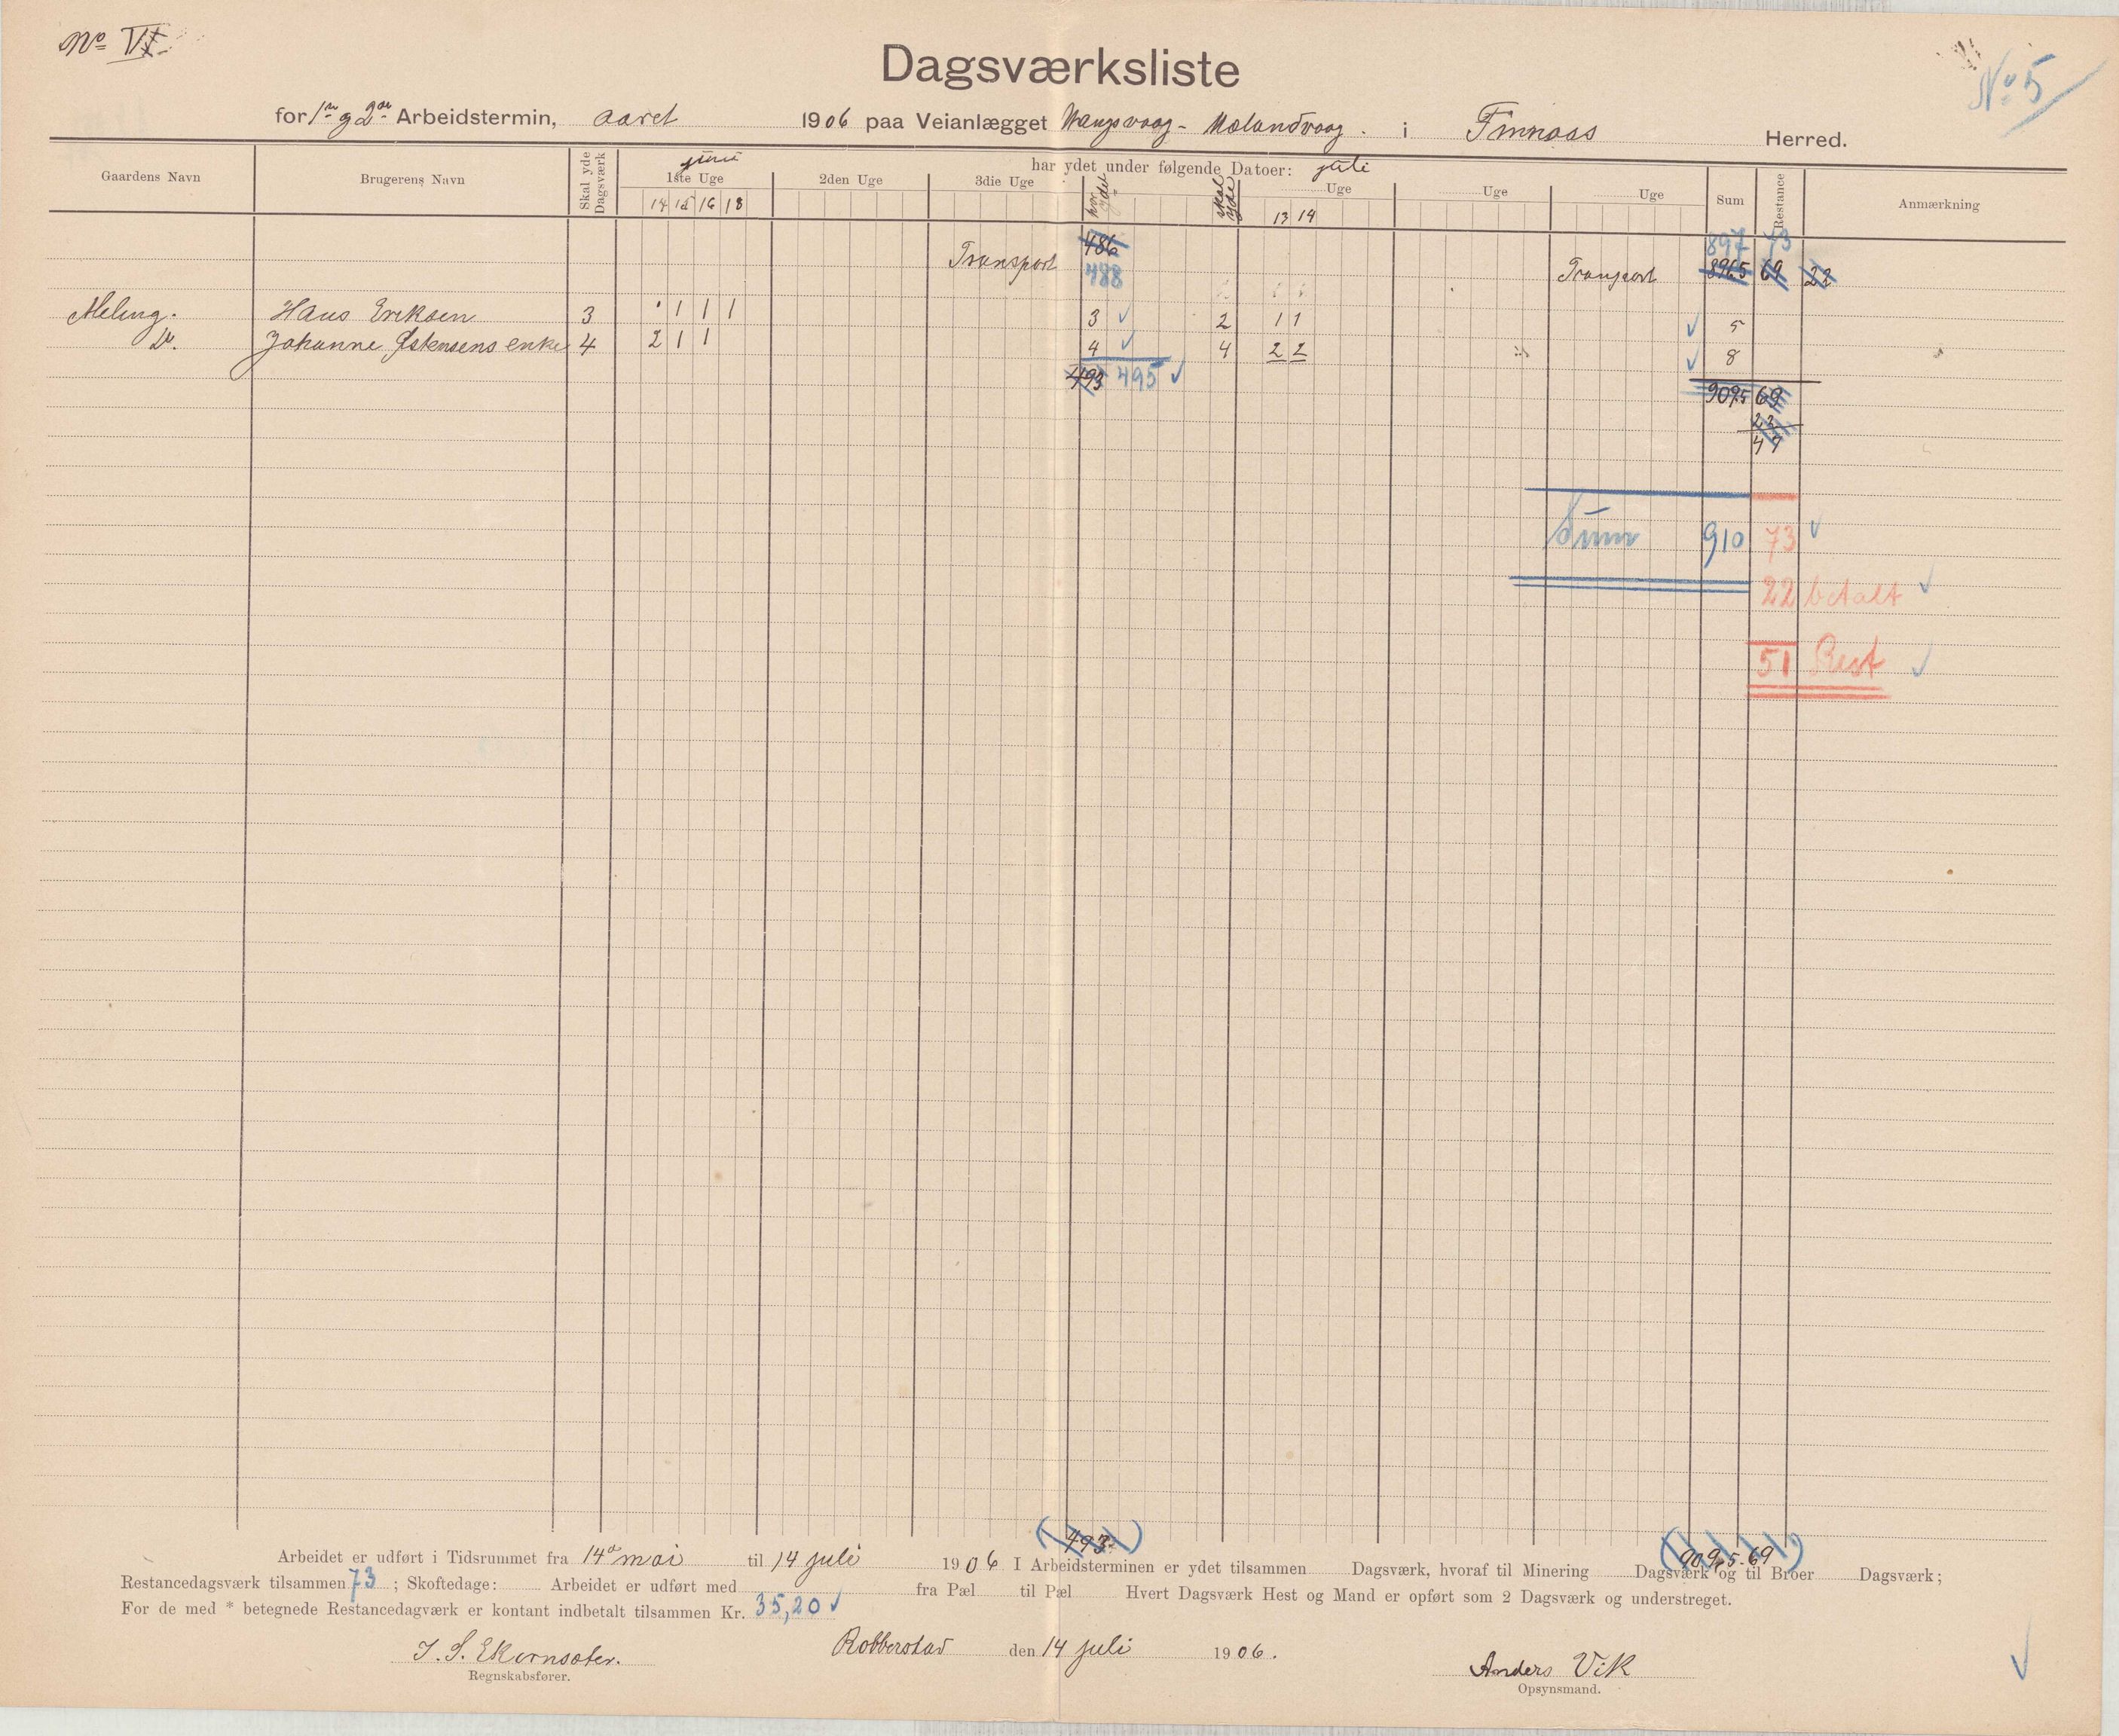 No VI.
No 5
Dagsværksliste
for 1ste og 2den Arbeidstermin, aaret 1906 paa Veianlægget Vaagsvaag - Mælandvaag. i Finnaas Herred.
Gaardens Navn Brugerens Navn Skal yde Dagsværk juni har ydet under følgende Datoer: juli
1ste Uge 2den Uge 3die Uge har ydet skal yde Uge Uge Uge Sum Restance Anmærkning
14 15 16 18 13 14
897 73
Transport 486 Transport 896,5 69 22
488
Meling. Hans Eriksen 3 1 1 1 3 2 1 1 5
Do. Johanne Østensens enke 4 2 1 1 4 4 2 2 8
493 495
909,5 69
22
47
Sum 910 73
22 betalt
51 Rest
(493)
(909,5 - 69)
Arbeidet er udført i Tidsrummet fra 14de mai til 14 juli 1906 I Arbeidsterminen er ydet tilsammen Dagsværk, hvoraf til Minering Dagsværk og til Broer Dagsværk;
Restancedagsværk tilsammen 73 ; Skoftedage: Arbeidet er udført med fra Pæl til Pæl Hvert Dagsværk Hest og Mand er opført som 2 Dagsværk og understreget.
For de med * betegnede Restancedagværk er kontant indbetalt tilsammen Kr. 35,20
J. S. Ekornsæter. Robberstad den 14 juli 1906. Anders Vik
Regnskabsfører. Opsynsmand.